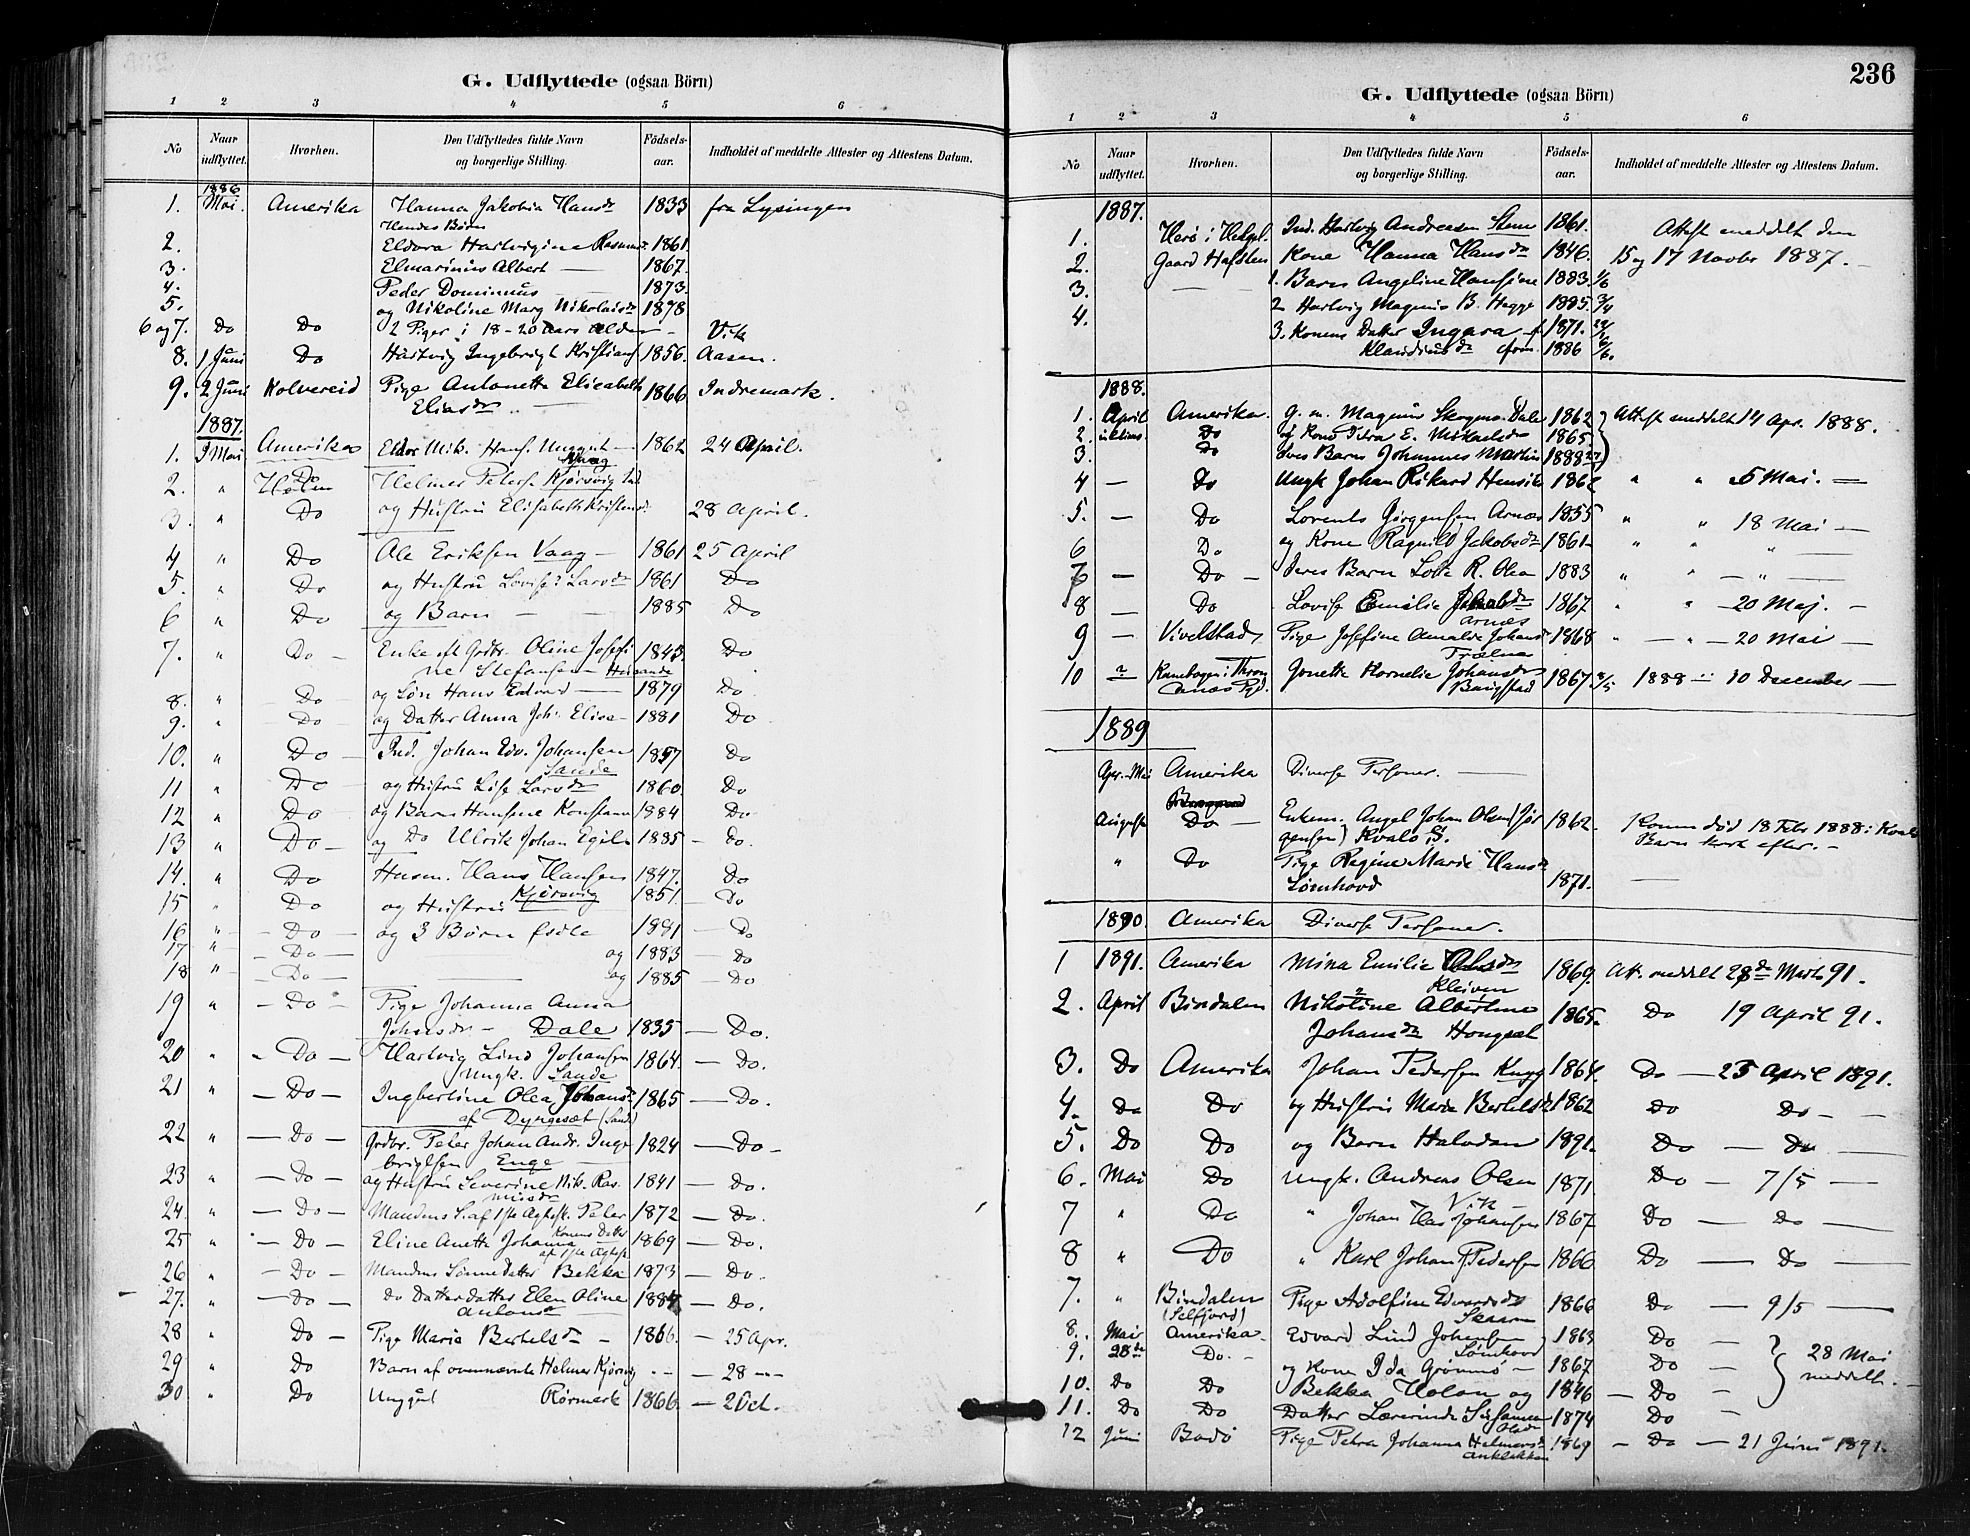 G. Udflyttede (ogsaa Börn)
1 2 3 4 5 6
No Naar udflyttet. Hvorhen. Den Udflyttedes fulde Navn og borgerlige Stilling. Födsels-aar. Indholdet af meddelte Attester og Attestens Datum.
1886
1. Mai. Amerika Hanna Jakobia Hansdr 1833 fra Lysingen
Hendes Børn
2. Eldora Hartvigine Rasmusd. 1861
3. Elmarinus Albert — 1867.
4. Peder Dominnus 1873.
5. og Nikoline Marg Nikolaisdr 1878
6 og 7. Do Do 2 Piger i 18-20 Aars Alder — Vik
8. 1 Juni Do Hartvig Ingebrigt Kristians. 1856. Aasen.
9. 2 Juni Kolvereid Pige Antonette Elisabeth 1866 Indremark.
Eliasdr
1887.
1. 9 Mai Amerika Mik. Hans. 1862 24 April.
2. " Do Helmer Peters. Kjørsvig Ind.
3. " Do og Hustru Elisabeth Kristensd. 28 April.
4 " Do Ole Eriksen Vaag — 1861 25 April
5. " Do og Hustru Lovise Larsdr 1861 Do
6 " Do og Barn — 1885 Do
7. " Do — Enke eft Grdbr. Oline Josefi 1845. Do
ne Stefansen —
8. " Do og Søn Hans Edvard — 1879 Do
9. " Do og Datter Anna Joh. Elise — 1881 Do
10. " Do — Ind. Johan Edv. Johansen 1857 Do
Sande
11 " Do — og Hustru Lise Larsdr 1860. Do
12 " Do og Barn Hansine Konstanse 1884 Do
13 " Do — og Do Ulrik Johan Egil 1885 — Do.
14. " Do Husm. Hans Hansen 1847. Do
15 " Do og Hustru Kjørsvig 1851. — Do
16 " — Do — og 3 Børn fødte 1881 — Do
17 " — Do — og 1883 — Do
18 " — Do — og 1885 — Do
19 " — Do — Pige Johanna Anna
Johansdr — Dale 1835 — Do.
20 " — Do — Hartvig Lind Johansen 1864. — Do.
Ungk. Sande
21 " — Do — Ingbertine Olea Johansd 1865 — Do.
af Dyrgesæt (Sande)
22 " — Do — Grdbr. Peter Johan Andr. Inge 1824 — Do —
brigtsen Enge
23 " — Do — og Hustru Severine Nik. Ras 1841 — Do.
musdr
24. " — Do — Mandens S. af 1ste Ægtesk. Peter 1872 — Do.
25 " — Do — Eline Anette Johanna Konens Datter 1869 — Do.
af 1ste Ægtesk
26 " — Do — Mandens Sønnedatter Bekka 1873 — Do.
27. " — Do — do Datterdatter Elen Oline 1884 — Do.
Antonsdr
28 " Do — Pige Maria Bertelsdr — 1866. — 25 Apr.
29 " Do Barn af ovennævnte Helmer Kjørsvig — 28 —
30 " Do Unggut Rørmark 1866. — 2 Oct.
236
G. Udflyttede (ogsaa Börn)
1 2 3 4 5 6
No Naar udflyttet. Hvorhen. Den Udflyttedes fulde Navn og borgerlige Stilling. Födsels-aar. Indholdet af meddelte Attester og Attestens Datum.
1887.
1. Herø i Helgel. Ind. Hartvig Andreasen Stene 1861. Attest meddelt den
2. Gaard Hafsten Kone Hanna Hansdr 1846. 15 og 17 Novbr 1887. —
3. 1. Barn Angeline Hansine 1883. 1/6
4. 2 Hartvig Magnus B. 1885. 3/4
3. Konens Datter Ingara f 1871.
Klaudiusdr 1886
1888.
1. April Amerika. G. m. Magnus Skogmo Dale 1862 Attest meddelt 14 Apr. 1888.
2. Do og Kone Petra E. Mikaelsdr 1865
3. Do deres Barn Johannes Martin 1888
4 — Do Ungk Johan Rikard Henrik 1862 " " 5 Mai. —
5. — Do Lorents Jørgensen Arnæs 1855 " " 18 Mai —
6 Do og Kone Ragnild Jakobsdr 1861 " " " —
7 — Do — deres Barn Lotte R. Olea 1883 " " — " —
8 — Do Lovise Emilie Jakobsdr 1867 " " — 20 Maj. —
Arnæs
9 — Vivelstad, Pige Josefine Amalie Johansd 1868 " — " — 20 Mai —
Trælnes
10 Jonette Kornelie Johansdr 1867 8/5 1888 10 December —
1889
Apr. Mai Amerika Diverse Personer. —
August Do — Enkem. Angel Johan Olsen (Jør 1862. Konen død 18 Febr 1888 i Kvalø
gensen) Kvalø S. Barn kort efter. —
" Do Pige Regine Marie Hansdr
Lømhovd 1871. —
1890. Amerika Diverse Personer.
1 1891. Amerika Mina Emilie Olsdr 1869. Att. meddelt 28de Marts 91.
Kleiven
2. April Bindalen Nikoline Albertine 1865. Do 19 April 91.
Johansdr Hongsæt
3. Do Amerika Johan Pedersen 1864. Do — 25 April 1891.
4. Do Do og Hustru Maria Bertelsdr 1862 Do Do — —
5. Do Do og Barn Halvdan 1891. Do — Do —
6. Mai Do Ungk. Andreas Olsen 1871. Do — 7/5 —
Vik —
7 " Do " Johan Johansen 1867 Do — Do —
8 " Do " Karl Johan Pedersen 1866 Do — Do —
7. " Bindalen Pige Adolfine Edvardsdr 1866 Do — 9/5 —
(Selfjord) Skaaren
8. Mai Amerika — Edvard Lind Johansen 1863 Do —
9. 28de Do. — Lømhovd 28 Mai
og Kone Ida Grønmo — 1867 Do — meddelt. —
10. Do Do Bekka Holan og 1846 — Do —
11. Do Do Datter Lærerinde Susanna 1874 Do —
Olsd
12 Juni Bodö Pige Petra Johanna Helmersdr 1869 — Do — 21 Juni 1891.